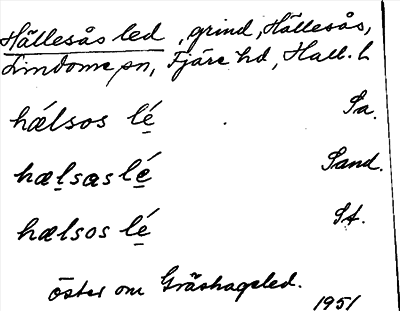 Hällesås led, grind, Hällesås,
Lindome sn, Fjäre hd, Hall. l.
hǽlsos lé̱ Sa.
hæḻsas lé̱ Sand.
hælsos lé̱ St.
öster om Gräshagsled.
1951